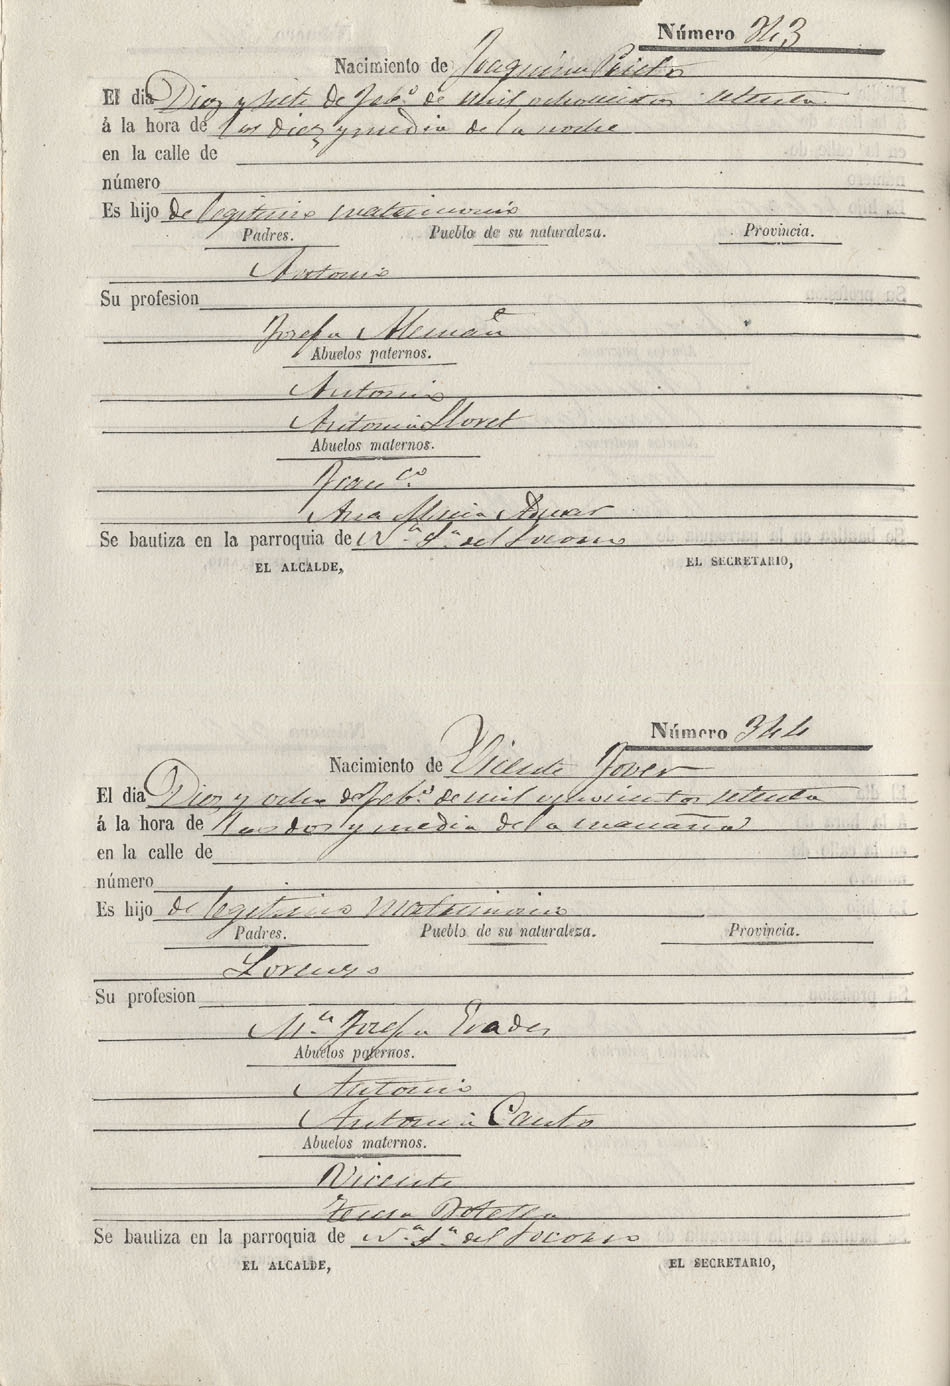 Número 343
Nacimiento de Joaquina Prieto
El dia Diez y siete de Feb.º de mil ochocientos setenta
á la hora de las diez y media de la noche
en la calle de
número
Es hijo de legitimo matrimonio
Padres. Pueblo de su naturaleza. Provincia.
Antonio
Su profesion
Josefa Alemañ
Abuelos paternos.
Antonio
Antonia Lloret
Abuelos maternos.
Fran.co
Ana Maria
Se bautiza en la parroquia de N.a S.a del Socorro
EL ALCALDE, EL SECRETARIO,
Número 344
Nacimiento de Vicente Jover
El dia Diez y ocho de Feb.º de mil ochocientos setenta
á la hora de las dos y media de la mañana
en la calle de
número
Es hijo de legitimo matrimonio
Padres. Pueblo de su naturaleza. Provincia.
Lorenzo
Su profesion
M.a Josefa
Abuelos paternos.
Antonio
Antonia Canto
Abuelos maternos.
Vicente
Teresa Botella
Se bautiza en la parroquia de N.a S.a del Socorro
EL ALCALDE, EL SECRETARIO,